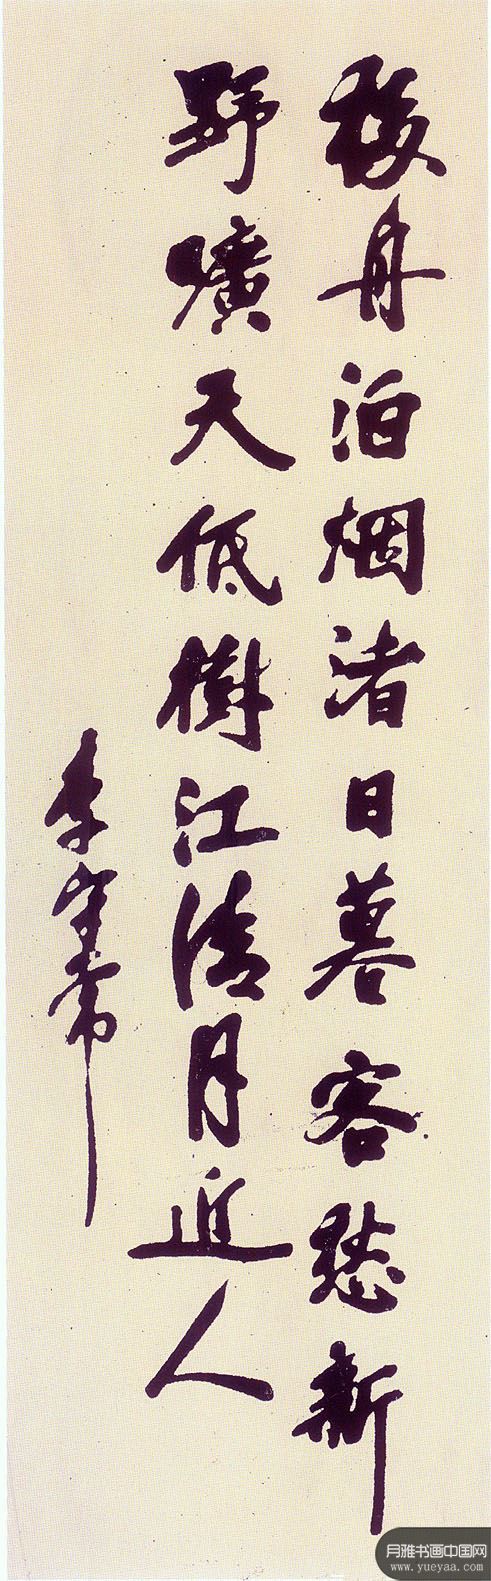 移舟泊烟渚日暮客愁新
野曠天低樹江清月近人
李守常
月雅书画中国网
www.yueyaa.com